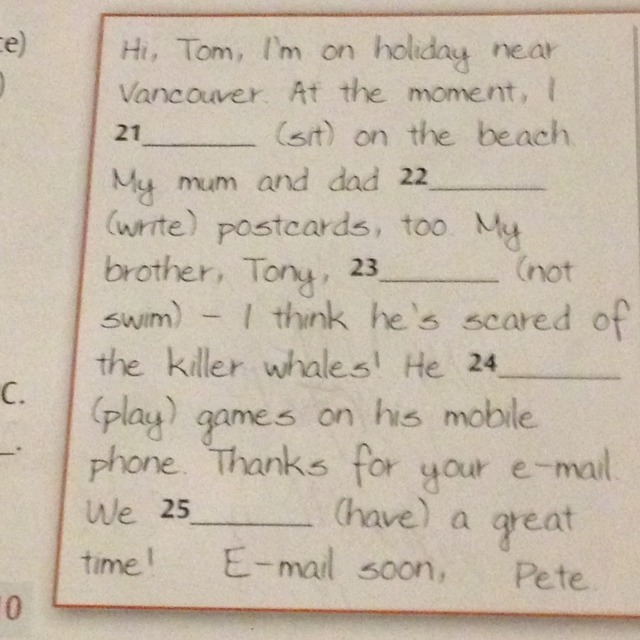 Hi, Tom, I'm on holiday near
Vancouver. At the moment, I
21________ (sit) on the beach.
My mum and dad 22________
(write) postcards, too. My
brother, Tony, 23________ (not
swim) – I think he's scared of
the killer whales! He 24________
(play) games on his mobile
phone. Thanks for your e-mail.
We 25________ (have) a great
time! E-mail soon, Pete.
C.